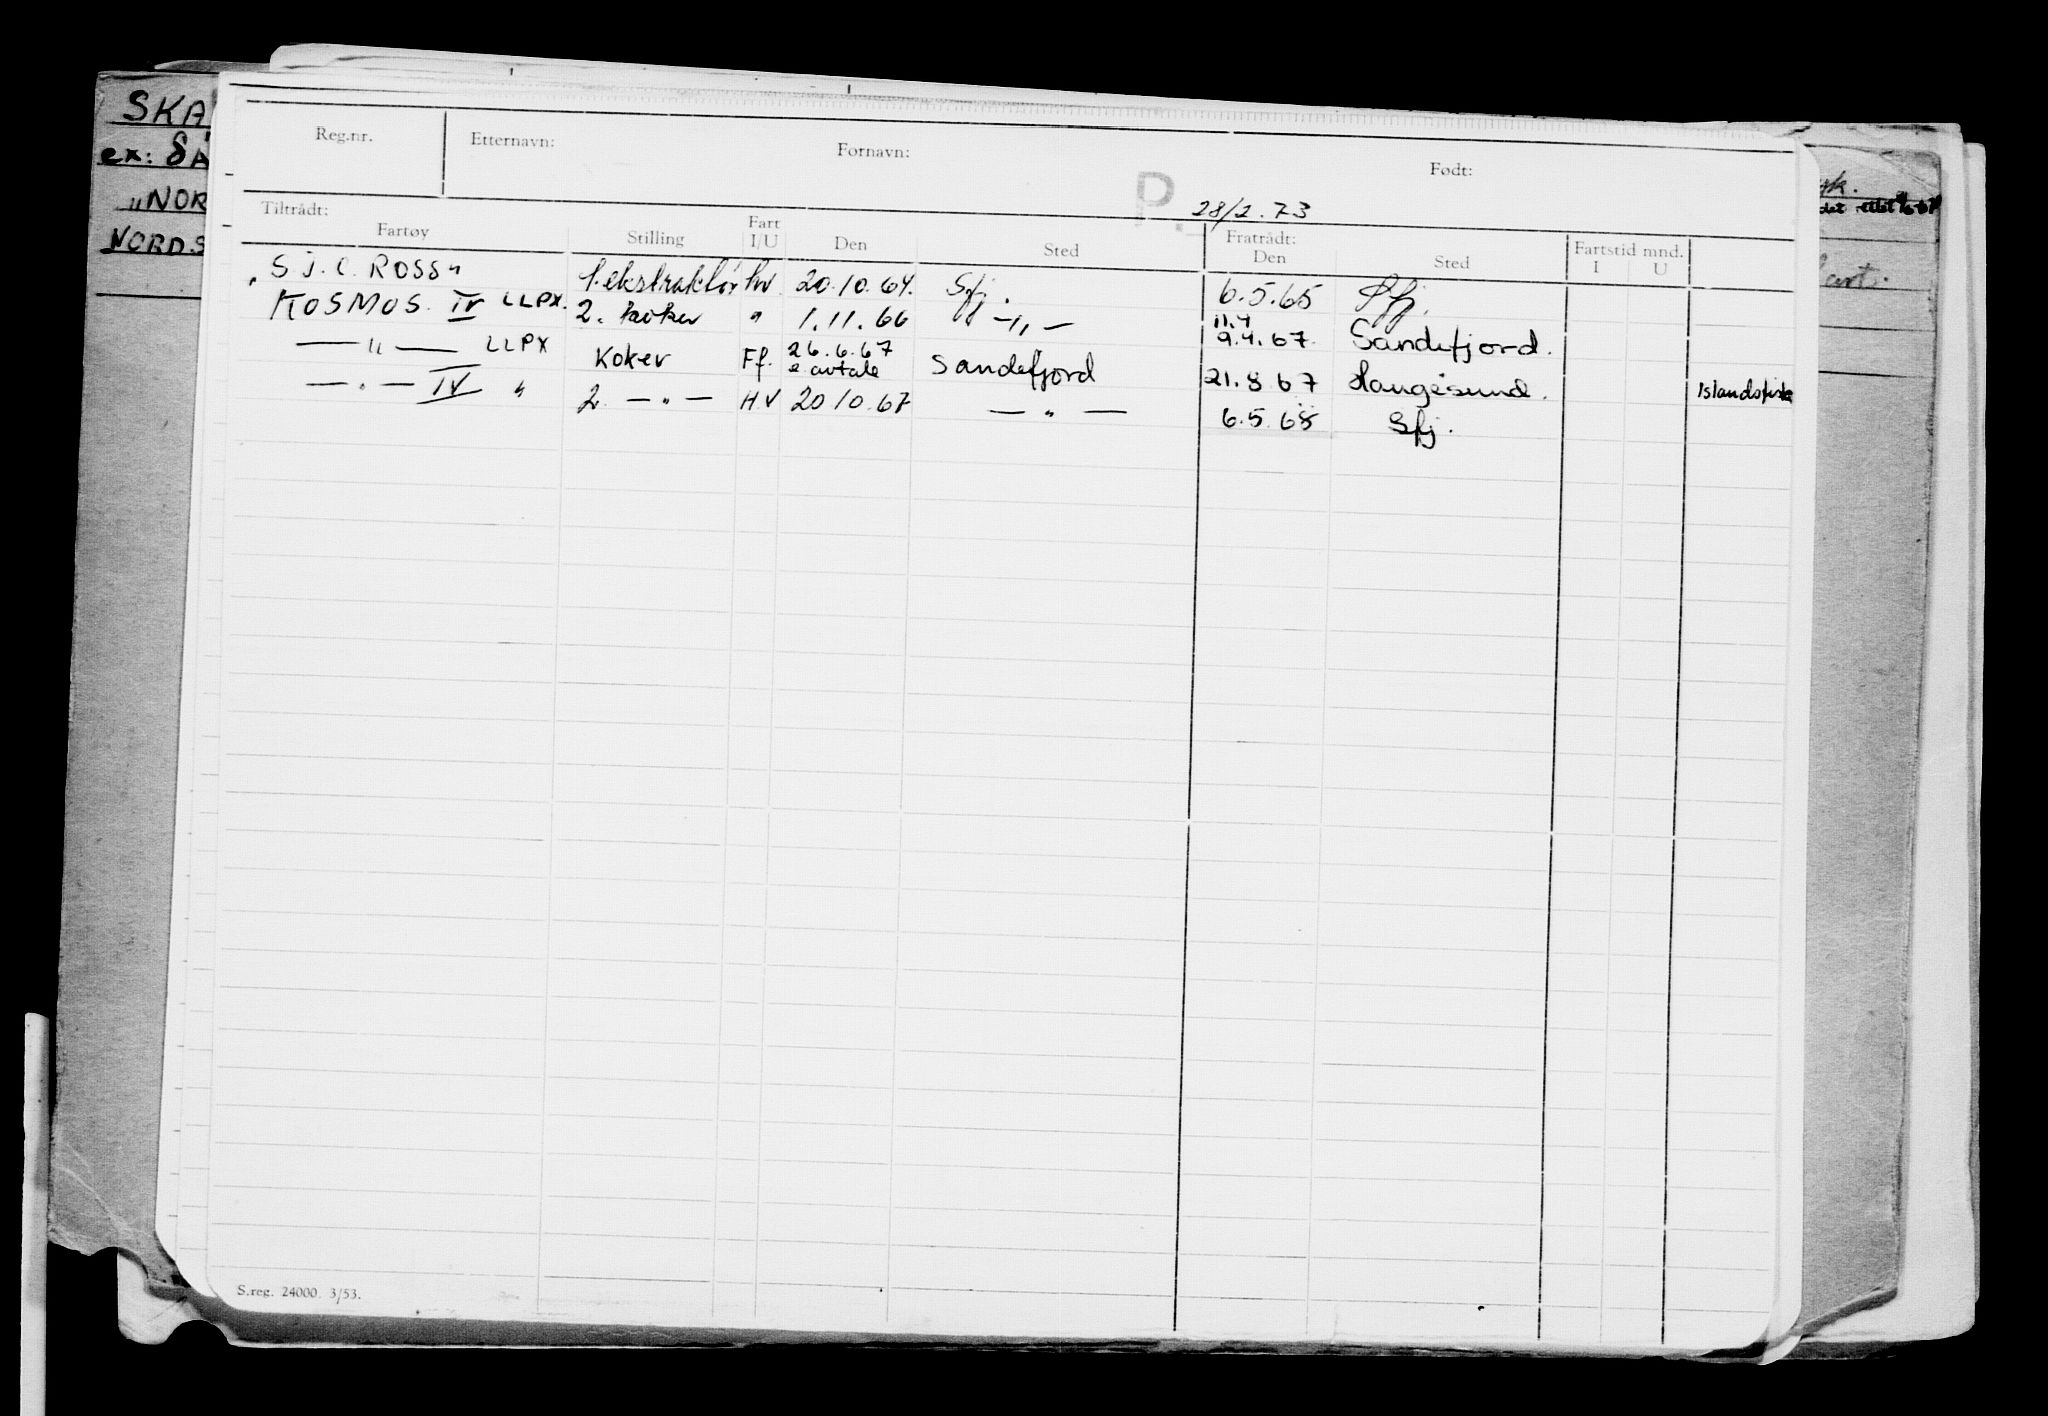 SKA
ex: SA
„NOR
NORDS
Reg.nr. Etternavn: Fornavn: Født:
P. 28/2.73
Tiltrådt: Fratrådt: Fartstid mnd.
Fartøy Stilling Fart I/U Den Sted Den Sted I U
S J. C. ROSS" 1. ekstraktør hv 20.10.64. Sfj. 6.5.65 Sfj.
KOSMOS IV LLPX. 2. koker " 1.11.66 — „ — 11.4 9.4.67. Sandefjord.
— „ — LLPX Koker Ff. 26.6.67 e. avtale Sandefjord 21.8.67 Haugesund. Islandsfiske
— „ — IV " 2. — „ — H.V 20 10.67 — „ — 6.5.68 Sfj.
S.reg. 24000. 3/53.